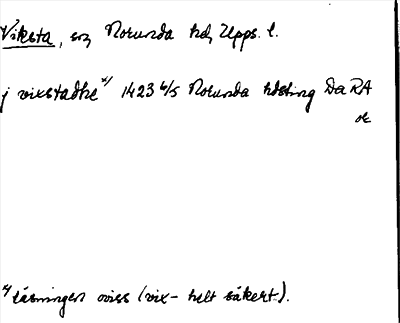 Viksta, sn, Norunda hd, Upps. l.
j vixstadhe x/ 1423 6/5 Norunda hdsting Da RA
or
x/ läsningen oviss (vix- helt säkert).